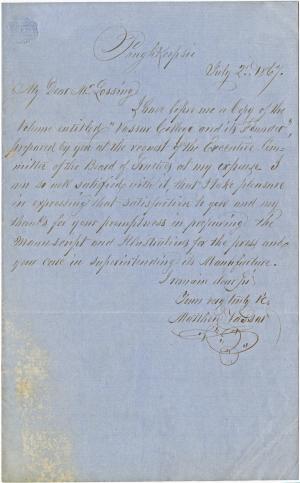 Poughkeepsie
July 2d. 1867.
My Dear Mr. Lossing
I have before me a Copy of the
Volume entitled "Vassar College and its Founder",
prepared by you at the request of the Executive Com-
mittee of the Board of Trustees at my expense. I
am so well satisfied with it, that I take pleasure
in expressing that satisfaction to you and my
thanks for your promptness in preparing the
Manuscript and Illustrations for the press and
your care in Superintending its Manufacture.
I remain dear Sir
Yours very truly &c.
Matthew Vassar